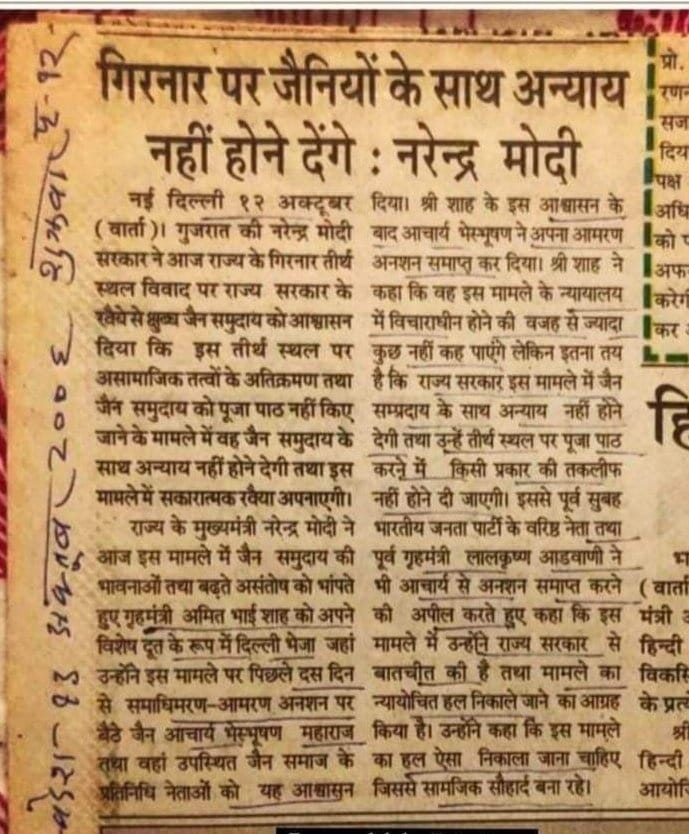 गिरनार पर जैनियों के साथ अन्याय
नहीं होने देंगे : नरेन्द्र मोदी
नई दिल्ली १२ अक्टूबर
(वार्ता)। गुजरात की नरेन्द्र मोदी
सरकार ने आज राज्य के गिरनार तीर्थ
स्थल विवाद पर राज्य सरकार के
रवैये से क्षुब्ध जैन समुदाय को आश्वासन
दिया कि इस तीर्थ स्थल पर
असामाजिक तत्वों के अतिक्रमण तथा
जैन समुदाय को पूजा पाठ नहीं किए
जाने के मामले में वह जैन समुदाय के
साथ अन्याय नहीं होने देगी तथा इस
मामले में सकारात्मक रवैया अपनाएगी।
राज्य के मुख्यमंत्री नरेन्द्र मोदी ने
आज इस मामले में जैन समुदाय की
भावनाओं तथा बढ़ते असंतोष को भांपते
हुए गृहमंत्री अमित भाई शाह को अपने
विशेष दूत के रूप में दिल्ली भेजा जहां
उन्होंने इस मामले पर पिछले दस दिन
से समाधिमरण-आमरण अनशन पर
बैठे जैन आचार्य भेस्भूषण महाराज
तथा वहां उपस्थित जैन समाज के
प्रतिनिधि नेताओं को यह आश्वासन
दिया। श्री शाह के इस आश्वासन के
बाद आचार्य भेस्भूषण ने अपना आमरण
अनशन समाप्त कर दिया। श्री शाह ने
कहा कि वह इस मामले के न्यायालय
में विचाराधीन होने की वजह से ज्यादा
कुछ नहीं कह पाएंगे लेकिन इतना तय
है कि राज्य सरकार इस मामले में जैन
सम्प्रदाय के साथ अन्याय नहीं होने
देगी तथा उन्हें तीर्थ स्थल पर पूजा पाठ
करने में किसी प्रकार की तकलीफ
नहीं होने दी जाएगी। इससे पूर्व सुबह
भारतीय जनता पार्टी के वरिष्ठ नेता तथा
पूर्व गृहमंत्री लालकृष्ण आडवाणी ने
भी आचार्य से अनशन समाप्त करने
की अपील करते हुए कहा कि इस
मामले में उन्होंने राज्य सरकार से
बातचीत की है तथा मामले का
न्यायोचित हल निकाले जाने का आग्रह
किया है। उन्होंने कहा कि इस मामले
का हल ऐसा निकाला जाना चाहिए
जिससे सामजिक सौहार्द बना रहे।
१३ अक्तूबर २००६ शुक्रवार पृ-१२
प्रो.
रणन
सज
दिया
पक्ष
अधि
को प
अफ
करेग
कर
हि
(वार्ता
मंत्री
हिन्दी
विकसि
के प्रत्
श्री
हिन्दी
आयोजि